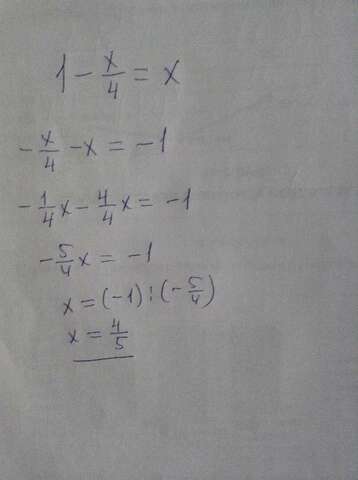 1 - x/4 = x
-x/4 - x = -1
-1/4 x - 4/4 x = -1
-5/4 x = -1
x = (-1) : (-5/4)
x = 4/5